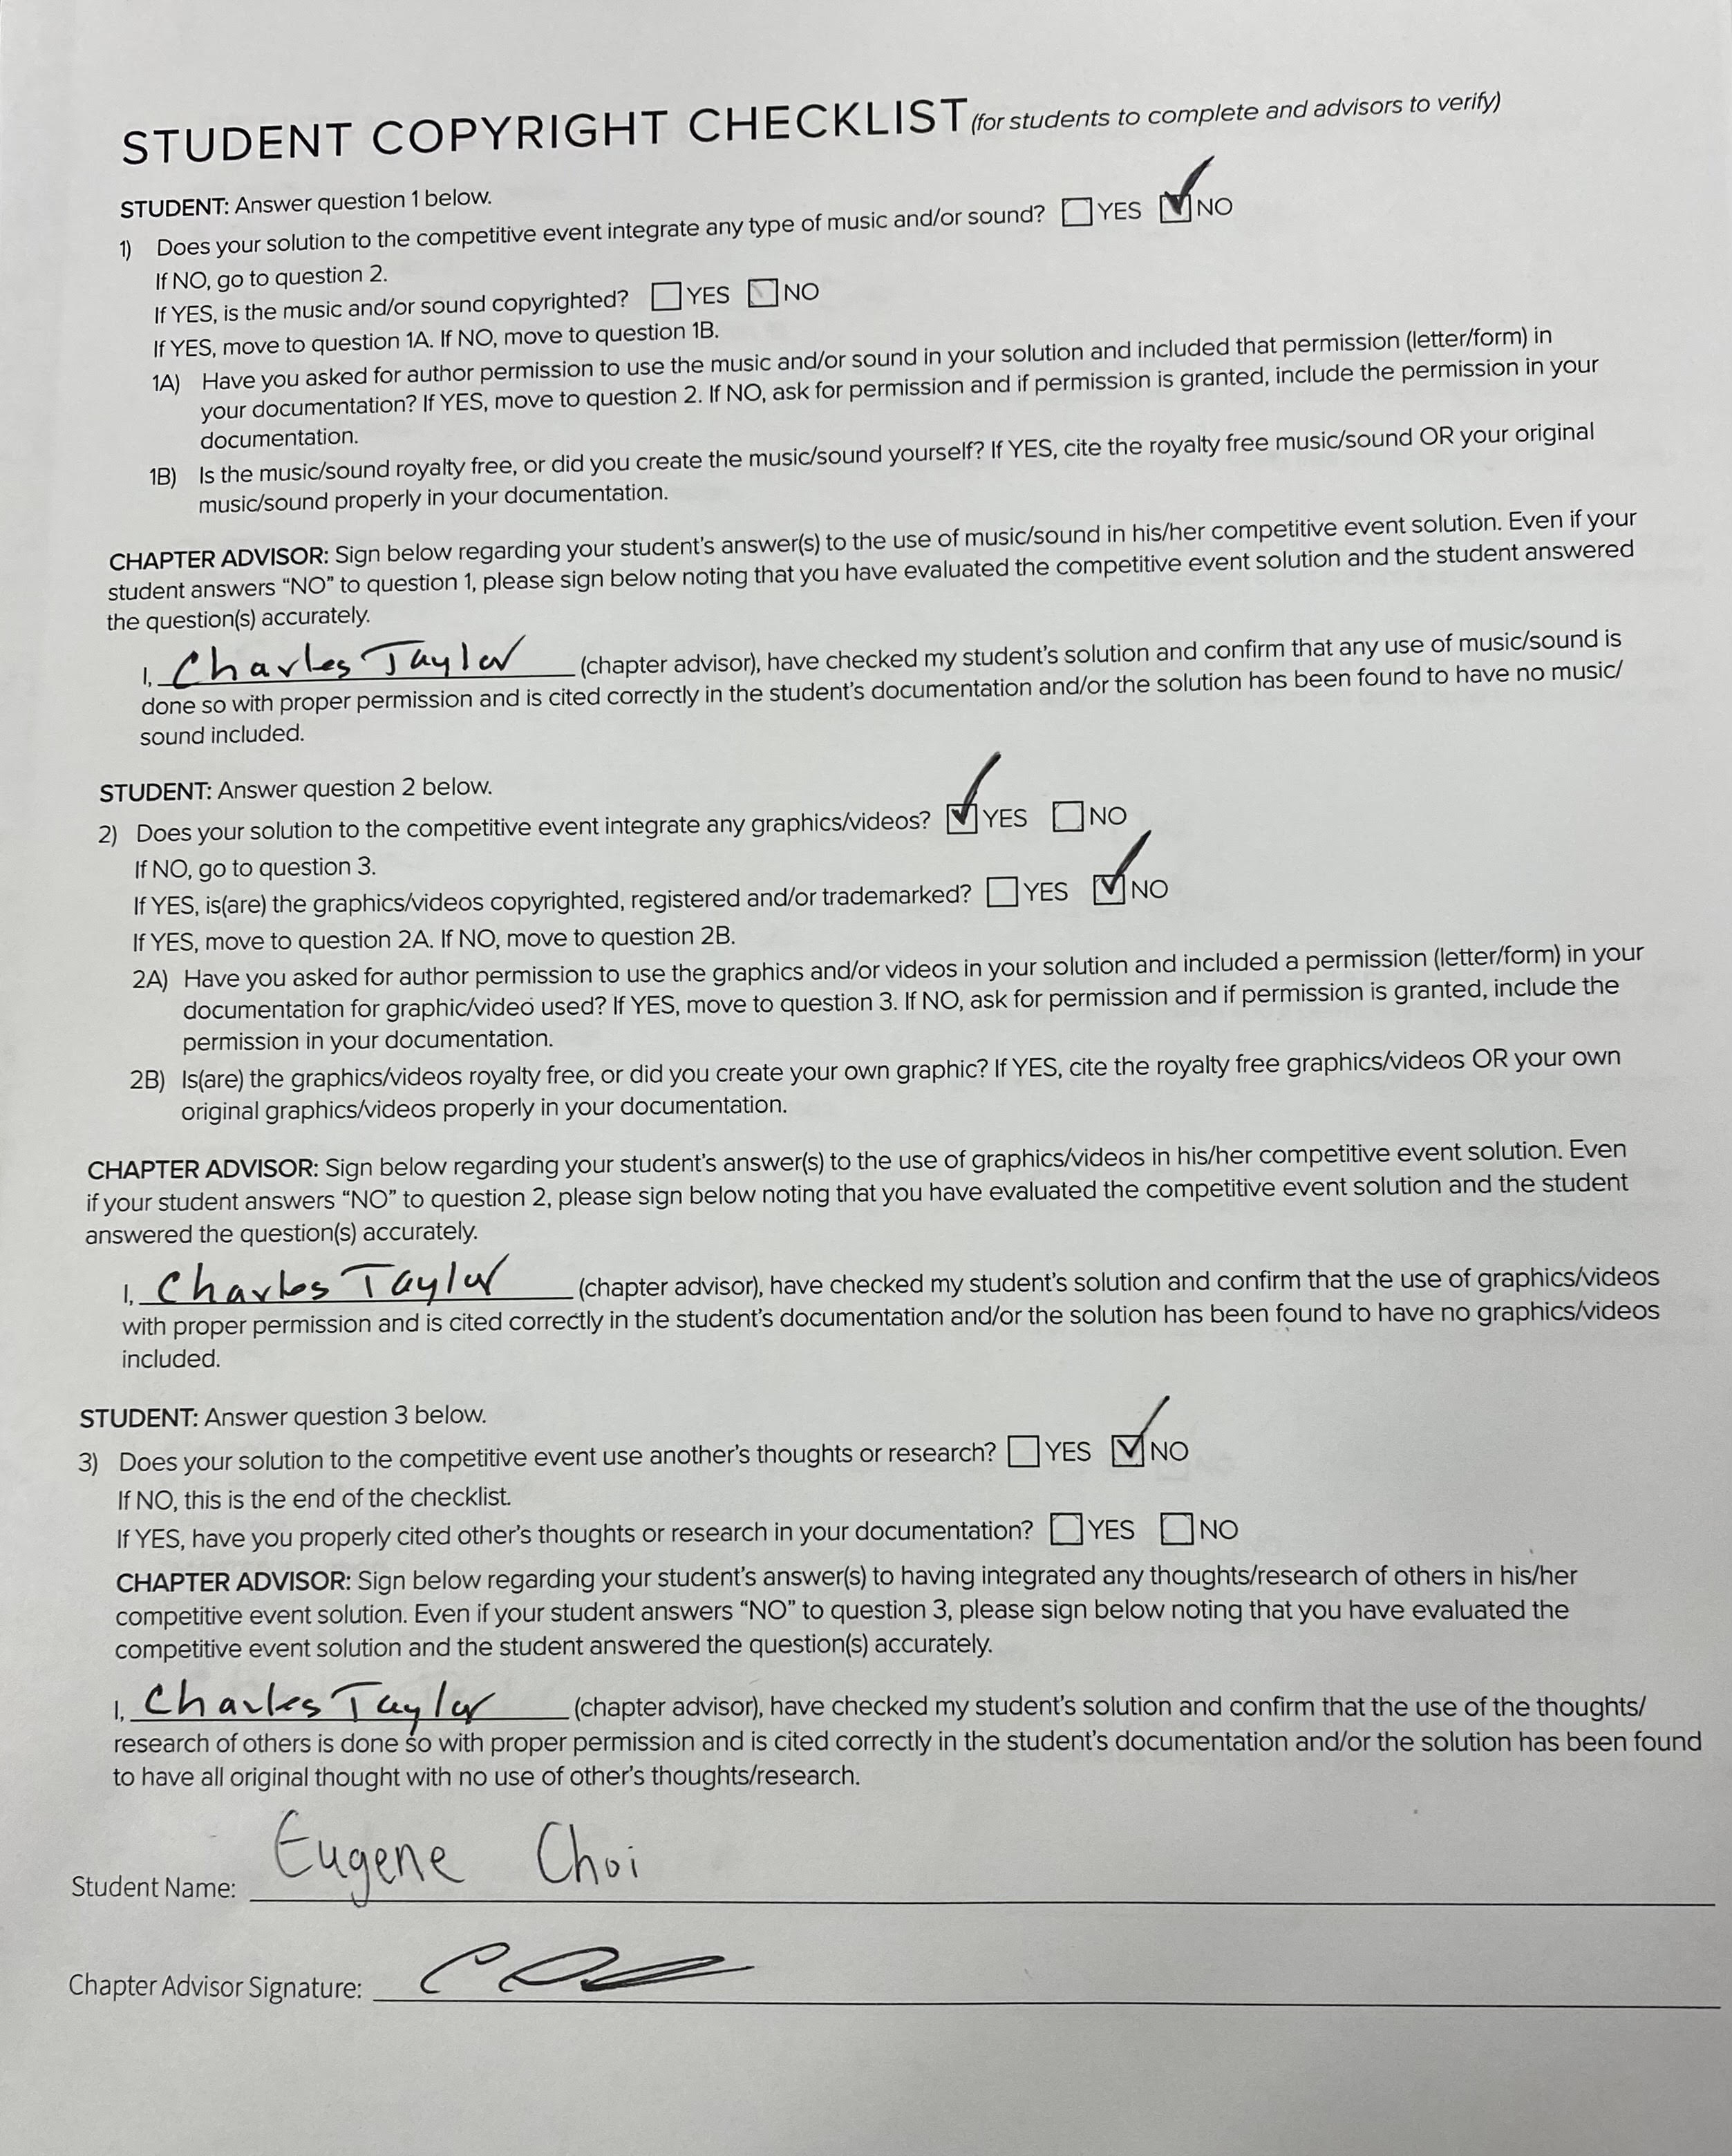 STUDENT COPYRIGHT CHECKLIST (for students to complete and advisors to verify)
STUDENT: Answer question 1 below.
1) Does your solution to the competitive event integrate any type of music and/or sound? YES NO
If NO, go to question 2.
If YES, is the music and/or sound copyrighted? YES NO
If YES, move to question 1A. If NO, move to question 1B.
1A) Have you asked for author permission to use the music and/or sound in your solution and included that permission (letter/form) in
your documentation? If YES, move to question 2. If NO, ask for permission and if permission is granted, include the permission in your
documentation.
1B) Is the music/sound royalty free, or did you create the music/sound yourself? If YES, cite the royalty free music/sound OR your original
music/sound properly in your documentation.
CHAPTER ADVISOR: Sign below regarding your student's answer(s) to the use of music/sound in his/her competitive event solution. Even if your
student answers "NO" to question 1, please sign below noting that you have evaluated the competitive event solution and the student answered
the question(s) accurately.
I, Charles Taylor (chapter advisor), have checked my student's solution and confirm that any use of music/sound is
done so with proper permission and is cited correctly in the student's documentation and/or the solution has been found to have no music/
sound included.
STUDENT: Answer question 2 below.
2) Does your solution to the competitive event integrate any graphics/videos? YES NO
If NO, go to question 3.
If YES, is(are) the graphics/videos copyrighted, registered and/or trademarked? YES NO
If YES, move to question 2A. If NO, move to question 2B.
2A) Have you asked for author permission to use the graphics and/or videos in your solution and included a permission (letter/form) in your
documentation for graphic/video used? If YES, move to question 3. If NO, ask for permission and if permission is granted, include the
permission in your documentation.
2B) Is(are) the graphics/videos royalty free, or did you create your own graphic? If YES, cite the royalty free graphics/videos OR your own
original graphics/videos properly in your documentation.
CHAPTER ADVISOR: Sign below regarding your student's answer(s) to the use of graphics/videos in his/her competitive event solution. Even
if your student answers "NO" to question 2, please sign below noting that you have evaluated the competitive event solution and the student
answered the question(s) accurately.
I, Charles Taylor (chapter advisor), have checked my student's solution and confirm that the use of graphics/videos
with proper permission and is cited correctly in the student's documentation and/or the solution has been found to have no graphics/videos
included.
STUDENT: Answer question 3 below.
3) Does your solution to the competitive event use another's thoughts or research? YES NO
If NO, this is the end of the checklist.
If YES, have you properly cited other's thoughts or research in your documentation? YES NO
CHAPTER ADVISOR: Sign below regarding your student's answer(s) to having integrated any thoughts/research of others in his/her
competitive event solution. Even if your student answers "NO" to question 3, please sign below noting that you have evaluated the
competitive event solution and the student answered the question(s) accurately.
I, Charles Taylor (chapter advisor), have checked my student's solution and confirm that the use of the thoughts/
research of others is done so with proper permission and is cited correctly in the student's documentation and/or the solution has been found
to have all original thought with no use of other's thoughts/research.
Student Name: Eugene Choi
Chapter Advisor Signature: